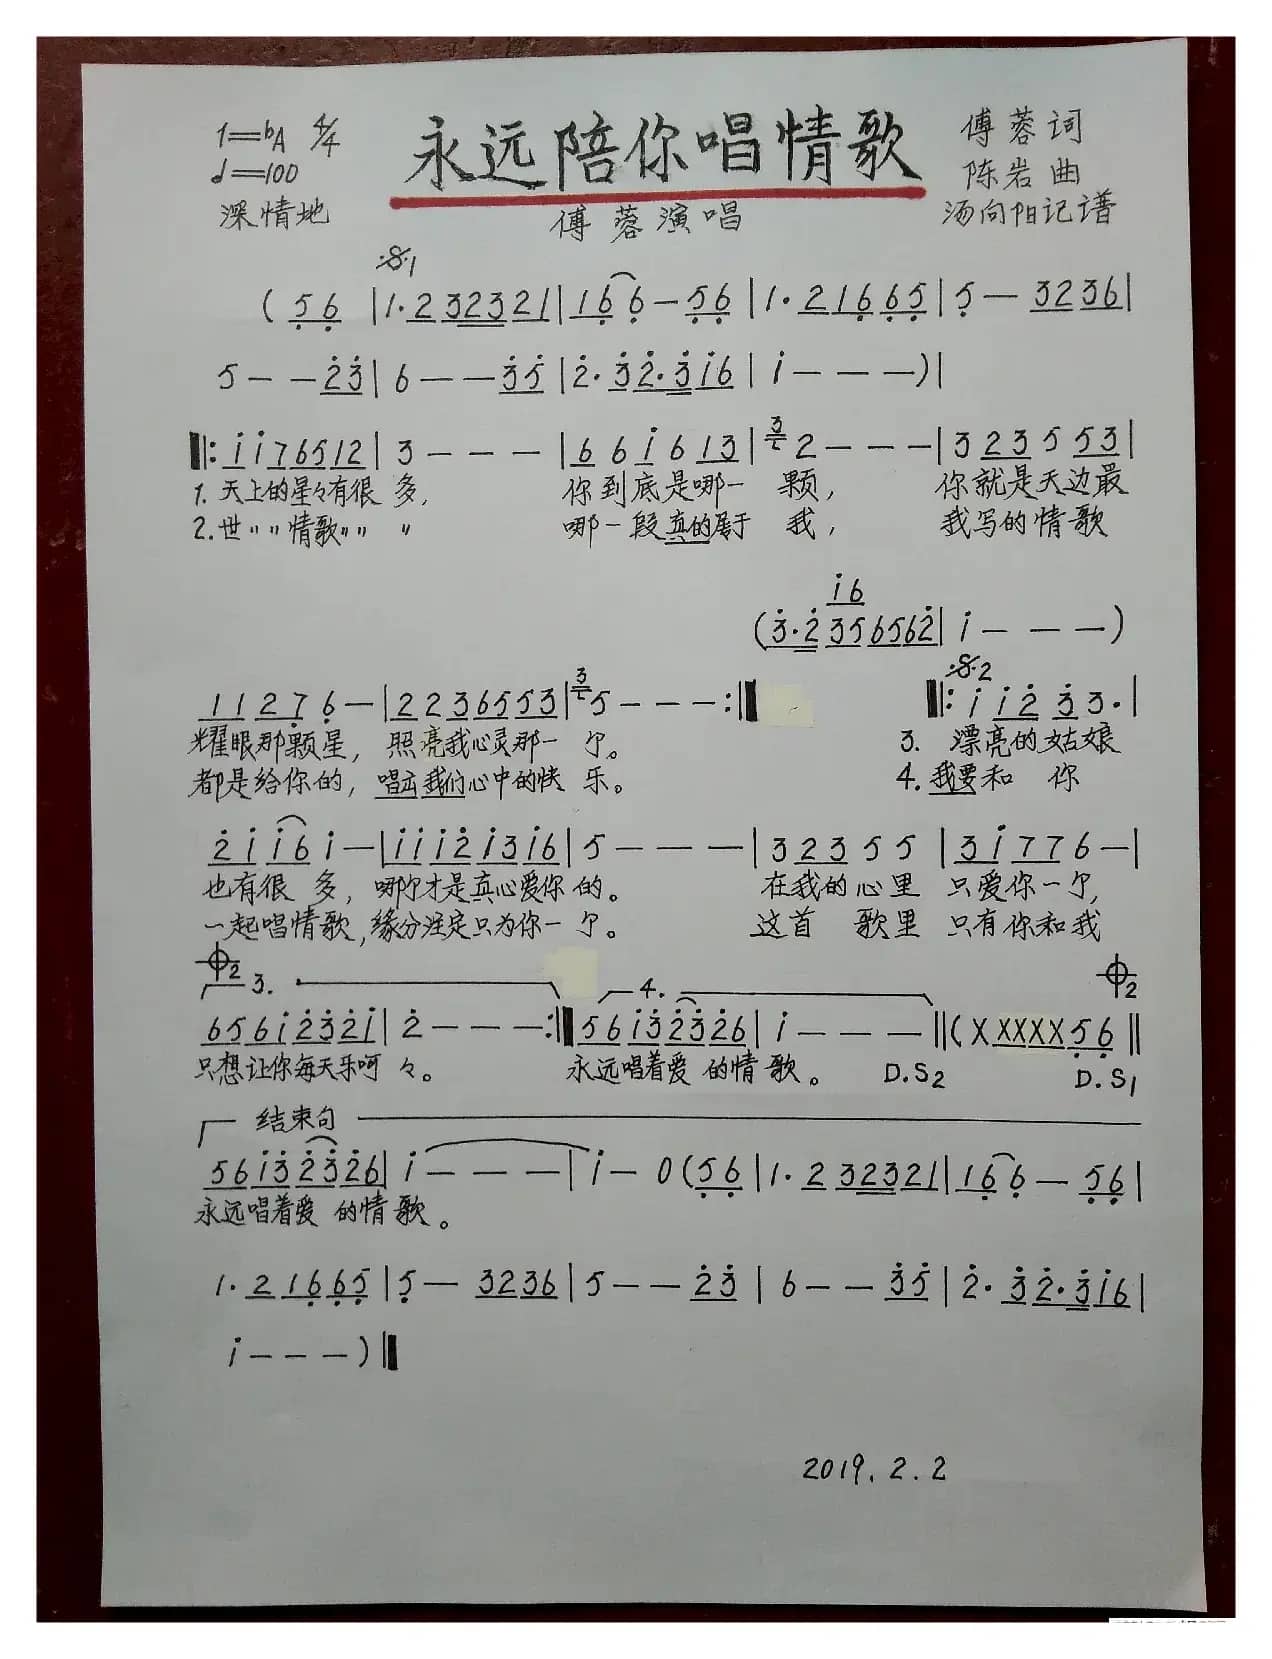 1=bA 4/4
♩=100
深情地
永远陪你唱情歌
傅蓉演唱
傅蓉词
陈岩曲
汤向阳记谱
𝄋1
( 5̣6̣ | 1·2 32321 | 16̣6̣ — 5̣6̣ | 1·2 16̣6̣5̣ | 5̣ — 3236 |
5 — — 2̇3̇ | 6 — — 3̇5̇ | 2̇·3̇2̇·3̇1̇6 | 1̇ — — — ) |
‖: 1̇1̇76512 | 3 — — — | 661̇613 | 3 2 — — — | 323553 |
1. 天上的星々有很 多, 你到底是哪一 颗, 你就是天边最
2. 世〃〃情歌〃〃 〃 哪一段真的属于 我, 我写的情歌
1̇6
(3̇·2̇ 356562̇ | 1̇ — — — )
1127̣6̣ — | 2236553 | 3 5 — — — :‖
𝄋2
‖: 1̇1̇2̇3̇3· |
耀眼那颗星, 照亮我心灵那一 个。 3. 漂亮的姑娘
都是给你的, 唱出我们心中的快 乐。 4. 我要和 你
2̇1̇1̇61̇ — | 1̇1̇1̇2̇1̇31̇6 | 5 — — — | 32355 | 31̇776 — |
也有很 多, 哪个才是真心爱你 的。 在我的心里 只爱你一个,
一起唱情歌, 缘分注定只为你一 个。 这首 歌里 只有你和我
𝄌2 3. 4. 𝄌2
6561̇2̇3̇2̇1̇ | 2̇ — — — :‖ 561̇3̇2̇3̇2̇6 | 1̇ — — — ‖ (X XXXX5̣6̣ ‖
只想让你每天乐呵 々。 永远唱着爱 的情 歌。 D.S2 D.S1
结束句
561̇3̇2̇3̇2̇6 | 1̇ — — — | 1̇ — 0 (5̣6̣ | 1·2 32321 | 16̣6̣ — 5̣6̣ |
永远唱着爱 的情 歌。
1·2 16̣6̣5̣ | 5̣ — 3236 | 5 — — 2̇3̇ | 6 — — 3̇5̇ | 2̇·3̇2̇·3̇1̇6 |
1̇ — — — ) ‖
2019.2.2